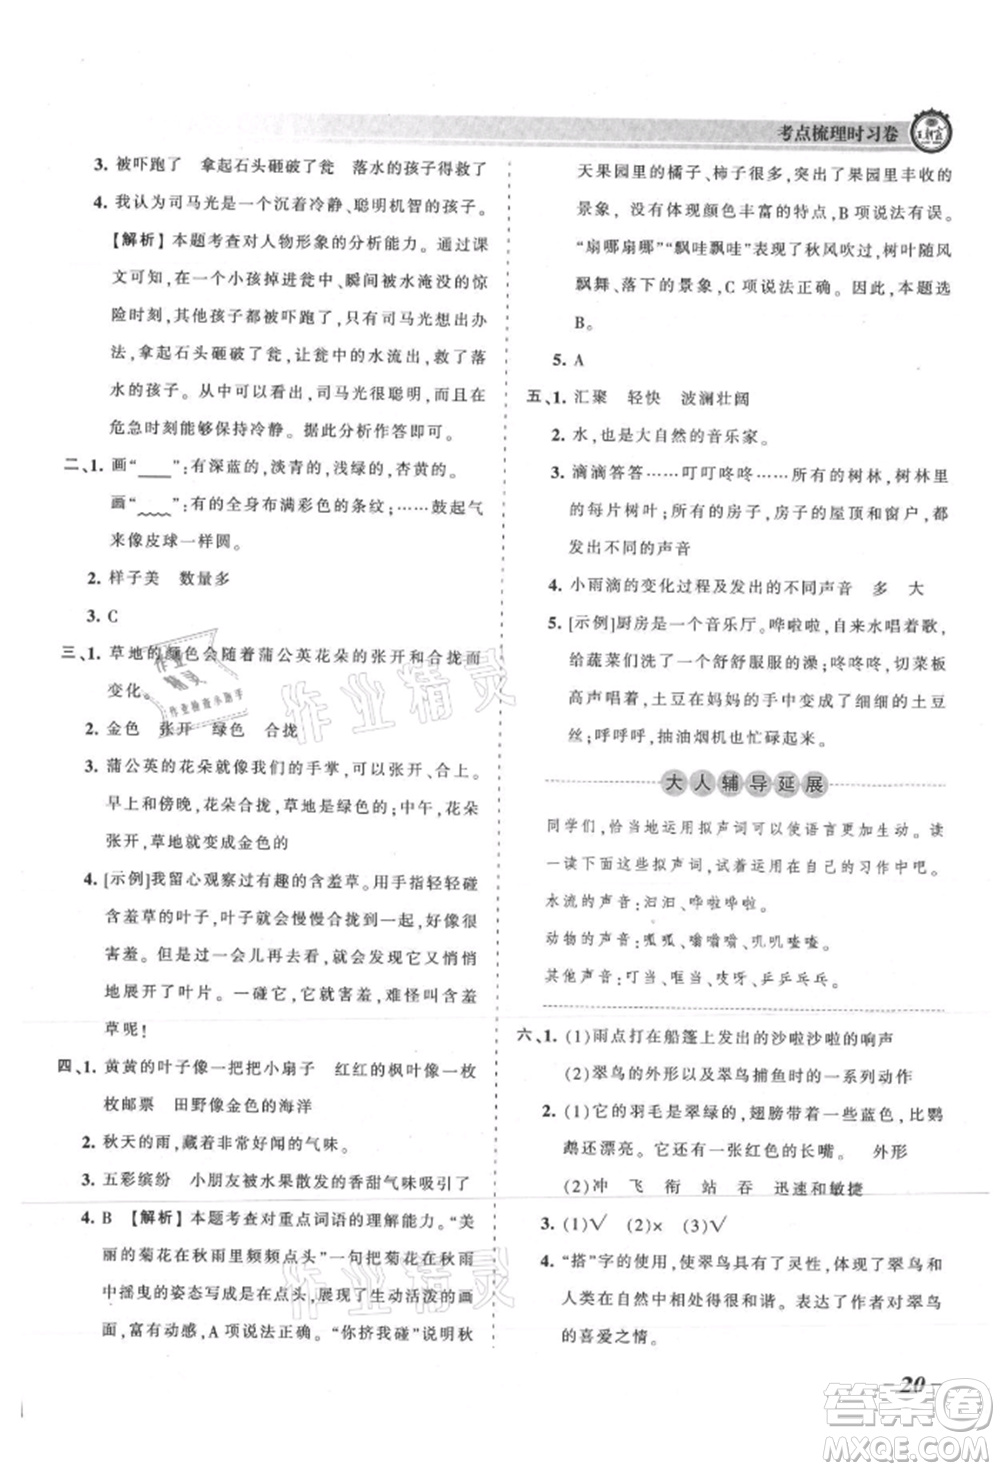 考点梳理时习卷
3. 被吓跑了　拿起石头砸破了瓮　落水的孩子得救了
4. 我认为司马光是一个沉着冷静、聪明机智的孩子。
【解析】本题考查对人物形象的分析能力。通过课
文可知,在一个小孩掉进瓮、瞬间被水淹没的惊
险时刻,其他孩子都被吓跑了,只有司马光想出办
法,拿起石头砸破了瓮,让瓮中的水流出,救了落
水的孩子。从中可以看出,司马光很聪明,而且在
危急时刻能够保持冷静。据此分析作答即可。
二、1. 画“____”:有深蓝的,淡青的,浅绿的,杏黄的。
画“﹏﹏”:有的全身布满彩色的条纹;……鼓起气
来像皮球一样圆。
2. 样子美　数量多
3. C
三、1. 草地的颜色会随着蒲公英花朵的张开和合拢而
变化。
2. 金色　张开　绿色　合拢
3. 蒲公英的花朵就像我们的手掌,可以张开、合上。
早上和傍晚,花朵合拢,草地是绿色的;中午,花朵
张开,草地就变成金色的。
4. [示例]我留心观察过有趣的含羞草。用手指轻轻碰
含羞草的叶子,叶子就会慢慢合拢在一起,好像在
害羞一样。但是过一会儿再去观察,发现它又悄悄
地展开了叶片。一碰它,它就害羞,难怪叫含羞
草呢!
四、1. 黄黄的叶子像一把把小扇子　红红的枫叶像一枚
枚邮票　田野像金色的海洋
2. 秋天的雨,藏着非常好闻的气味。
3. 五彩缤纷　小朋友被水果散发的香甜气味吸引了
4. B　【解析】本题考查对重点词语的理解能力。“美
丽的菊花在秋雨里频频点头”一句把菊花在秋雨
中摇曳的姿态写成是在点头,展现了生动活泼的画
面,富有动感,A 项说法正确。“你挤我碰”说明秋
天果园里的橘子、柿子很多,写出了果园里丰收的
景象,没有体现颜色丰富的特点,B 项说法有误。
“扇哪扇哪”“飘哇飘哇”表现了秋风吹过,树叶随风
飘舞、落下的景象,C 项说法正确。故此,本题选
B。
5. A
五、1. 汇聚　轻快　波澜壮阔
2. 水,也是大自然的音乐家。
3. 滴滴答答……叮叮咚咚……所有的树林,树林里
的每片树叶;所有的房子,房子的屋顶和窗户,都
发出不同的声音
4. 小雨滴的变化过程及发出的不同声音　多　大
5. [示例]厨房是一个音乐厅。哗啦啦,水龙头唱着歌,
给蔬菜们洗了一个舒舒服服的澡;咚咚咚,切菜刀
高声唱着,土豆在妈妈的手中变成了细细的土豆
丝;呼呼呼,抽油烟机也忙碌起来。
大人辅导延展
同学们,恰当地运用拟声词可以使语言更加生动。读
一读下面这些拟声词,试着运用到自己的习作中吧。
水流的声音:汩汩、哗啦哗啦。
动物的声音:呱呱、嗡嗡嗡、叽叽喳喳。
其他声音:叮当、哐当、吱呀、乒乒乓乓。
六、1. (1)雨点打在船篷上发出的沙啦沙啦的响声
(2)翠鸟的外形以及翠鸟捕鱼时的一系列动作
2. (1)它的羽毛是翠绿的,翅膀带着一些蓝色,比鹦
鹉还漂亮。它还有一张红色的长嘴。　外形
(2)冲　飞　衔　站　吞　迅速和敏捷
3. (1)√　(2)×　(3)√
4. “搭”字的使用,使翠鸟具有了灵性,体现了翠鸟和
人类在自然中相处得很和谐。表达了作者对翠鸟
的喜爱之情。
20
作业精灵
作业精灵
作业精灵
作业检查小助手
答案圈
MXQE.COM